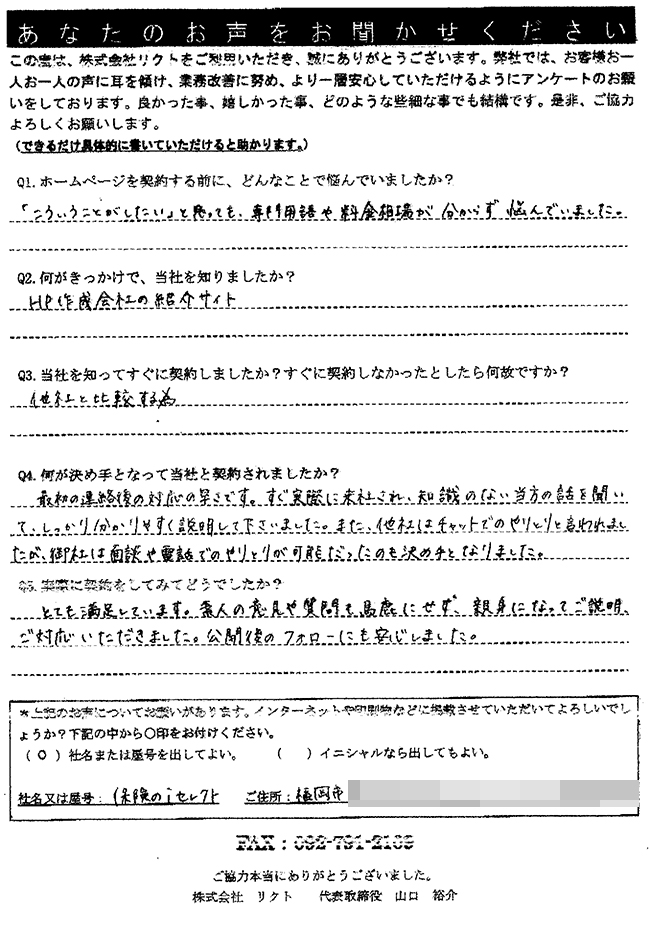 あなたのお声をお聞かせください
この度は、株式会社リクトをご利用いただき、誠にありがとうございます。弊社では、お客様お一
人お一人の声に耳を傾け、業務改善に努め、より一層安心していただけるようにアンケートのお願
いをしております。良かった事、嬉しかった事、どのような些細な事でも結構です。是非、ご協力
よろしくお願いします。
(できるだけ具体的に書いていただけると助かります。)
Q1. ホームページを契約する前に、どんなことで悩んでいましたか?
「こういうことがしたい」と思っても、専門用語や料金相場が分からず悩んでいました。
Q2. 何がきっかけで、当社を知りましたか?
HP作成会社の紹介サイト
Q3. 当社を知ってすぐに契約しましたか?すぐに契約しなかったとしたら何故ですか?
他社と比較する為
Q4. 何が決め手となって当社と契約されましたか?
最初の連絡後の対応の早さです。すぐ実際に来社され、知識のない当方の話を聞い
て、しっかり分かりやすく説明して下さいました。また、他社はチャットでのやりとりと言われまし
たが、御社は面談や電話でのやりとりが可能だったのも決め手となりました。
Q5. 実際に契約をしてみてどうでしたか?
とても満足しています。素人の意見や質問も馬鹿にせず、親身になってご説明、
ご対応いただきました。公開後のフォローにも安心しました。
*上記のお声についてお願いがあります。インターネットや印刷物などに掲載させていただいてよろしいでし
ょうか?下記の中から〇印をお付けください。
(〇)社名または屋号を出してよい。 ( )イニシャルなら出してもよい。
社名又は屋号:保険のiセレクト ご住所:福岡市
FAX:092-791-2169
ご協力本当にありがとうございました。
株式会社 リクト 代表取締役 山口 裕介